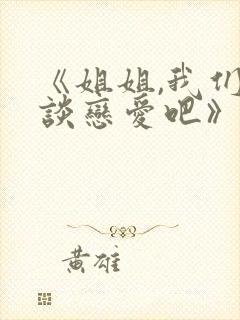 《姐姐,我们
談戀愛吧》
黄雄